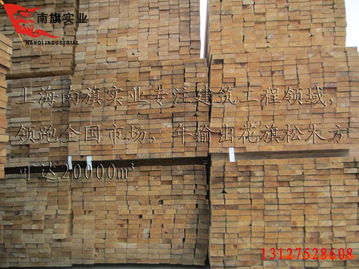 南旗实业
NANQI INDUSTRIAL
上海南旗实业专注建筑工程领域,
领跑全国市场，年输出花旗松木方
可达20000m³
13127528608